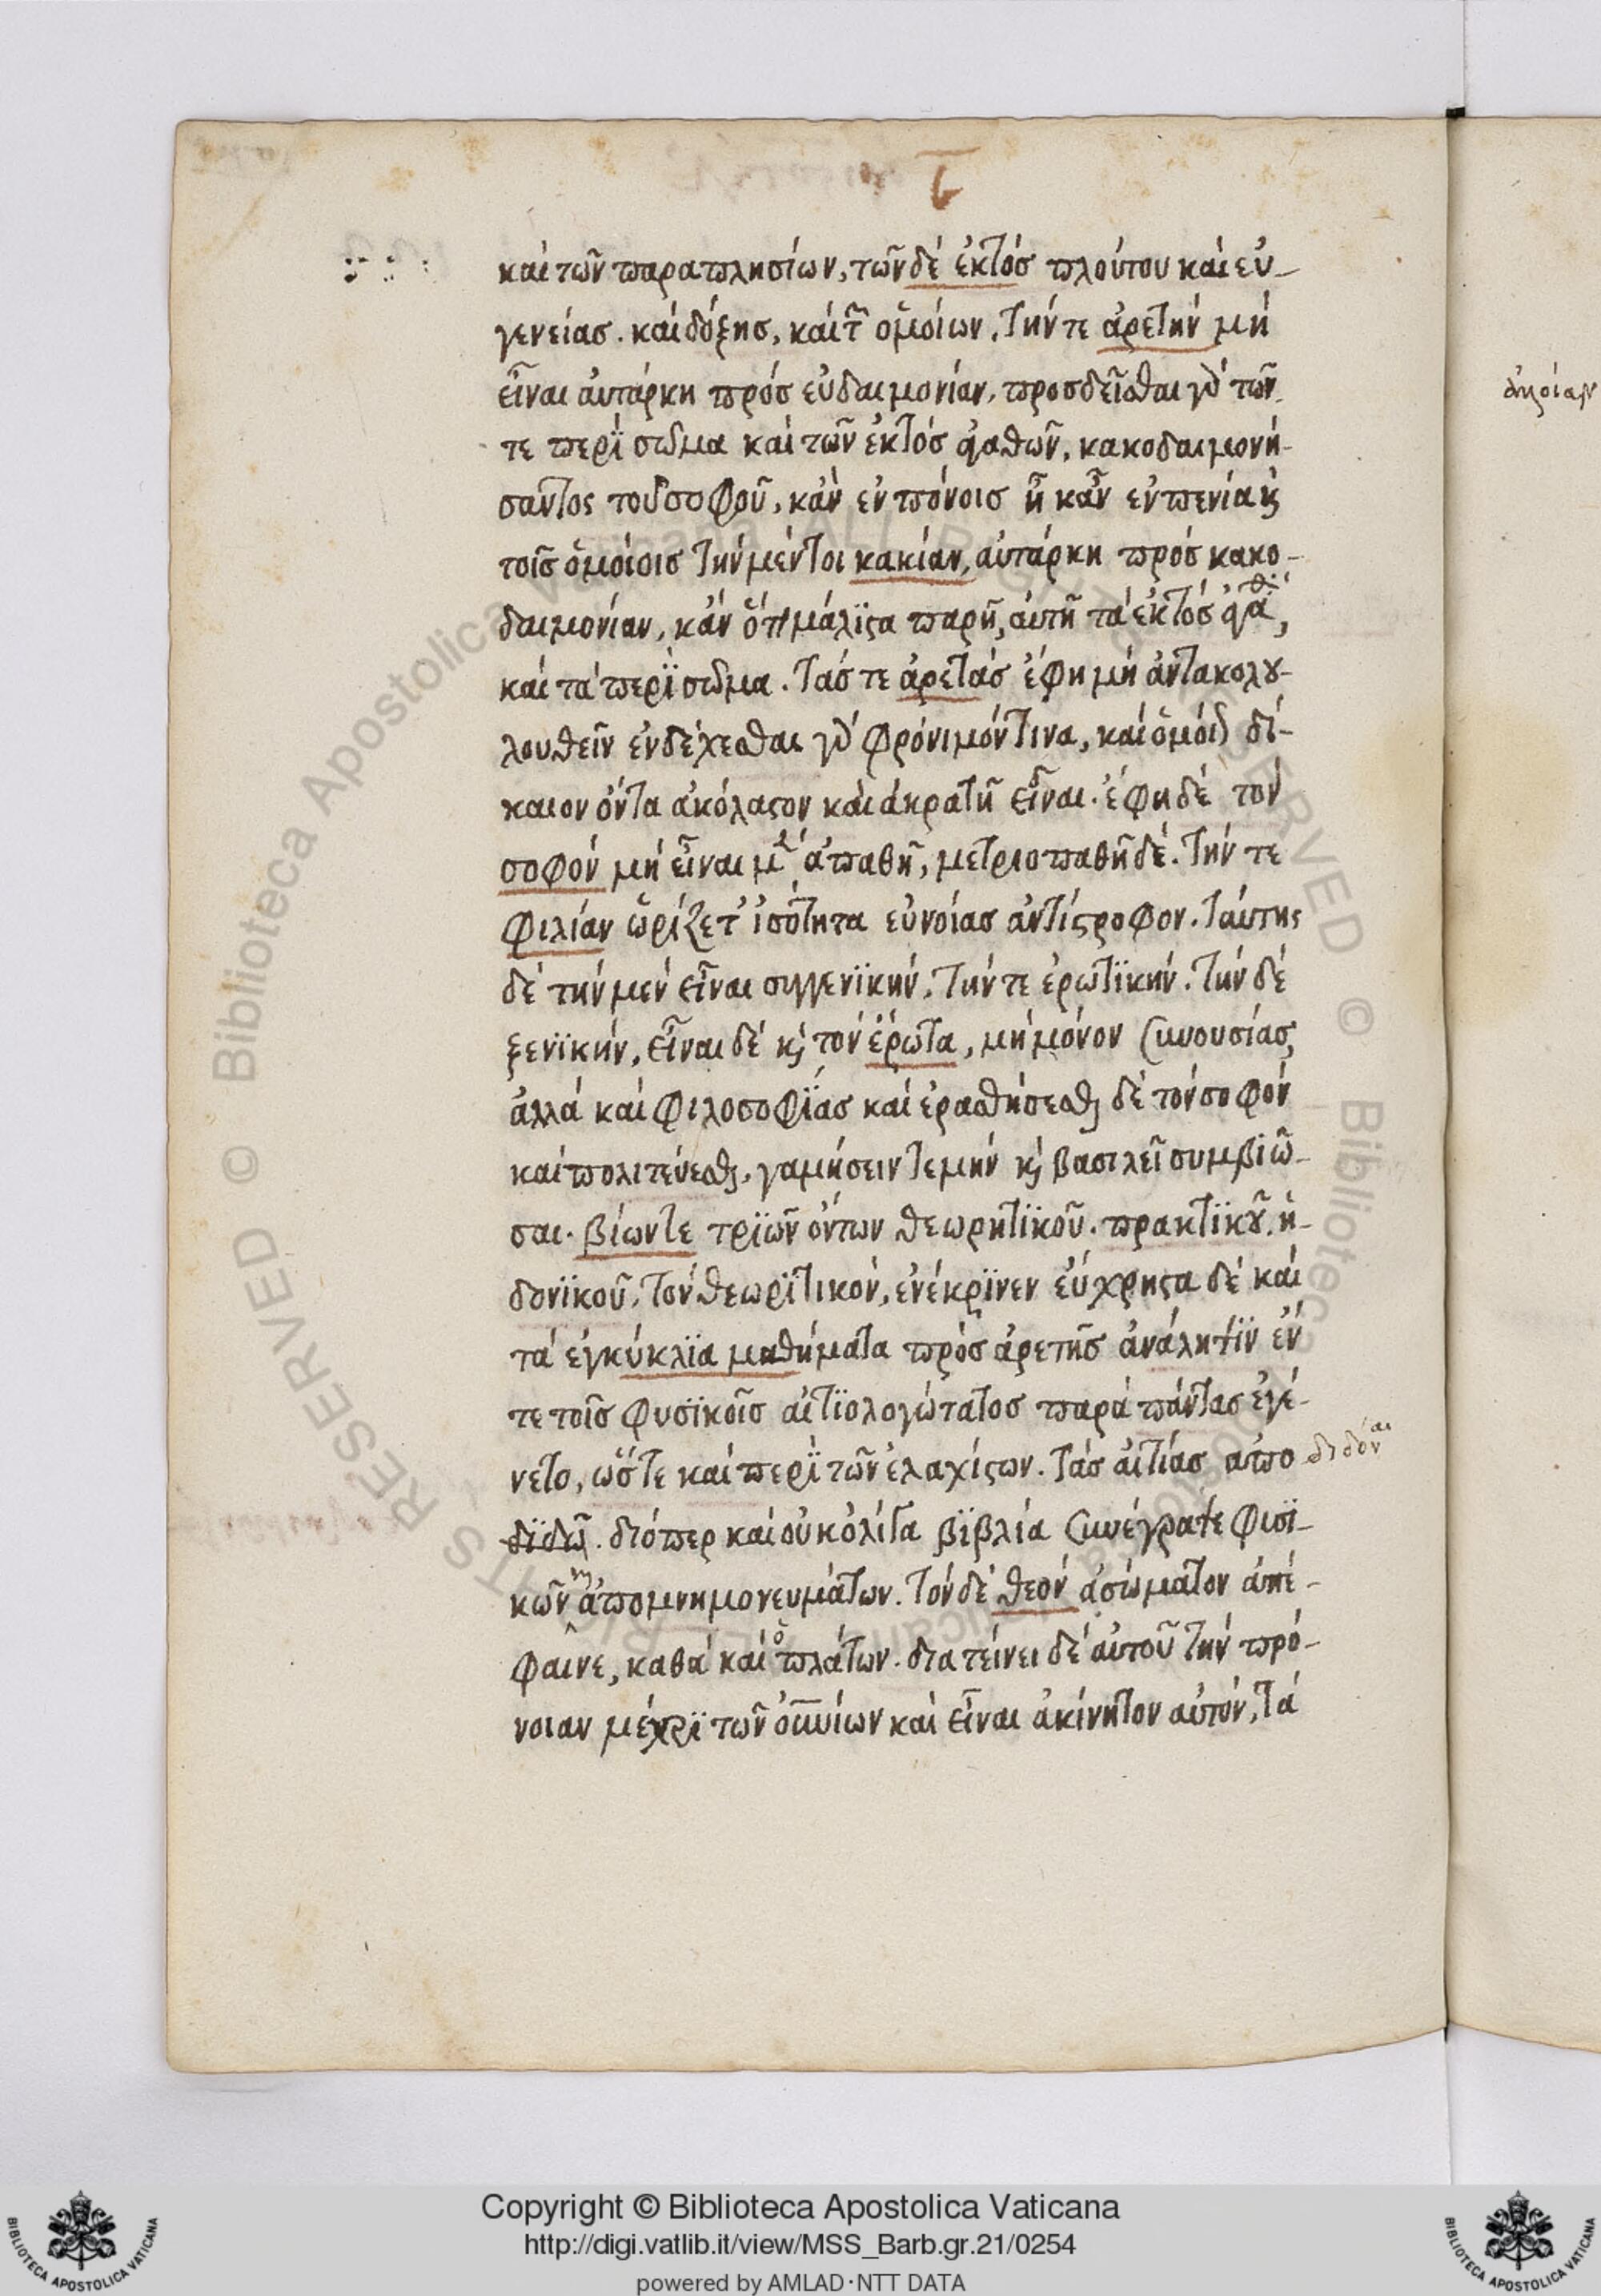 καὶ τῶν παραπλησίων, τῶν δὲ ἐκτός πλούτου καὶ εὐ-
γενείας. καὶ δόξης, καὶ τῶ ὁμοίων. τήν τε ἀρετὴν μὴ
εἶναι ἀυτάρκη πρός εὐδαιμονίαν, προσδεῖσθαι γὰρ τῶν
τε περῒ σῶμα καὶ τῶν ἐκτός ἀγαθῶν, κακοδαιμονή-
σαντος τοῦ σοφοῦ, κἀν ἐν πόνοις ἦ κἂν ἐν πενία κὶ
τοῖς ὁμοίοις τὴν μέντοι κακίαν, αὐτάρκη πρός κακο-
δαιμονίαν, κἀν ὅτι μάλϊστα παρῆ, ἀυτῆ τὰ ἐκτός ἀγαθὰ,
καὶ τὰ περῒ σῶμα. Τάς τε ἀρετὰς ἔφη μὴ ἀντακολου-
λουθεῖν ἐνδέχεσθαι γὰρ φρόνιμόν τινα, καὶ ὁμοίως δί-
καιον ὄντα ἀκόλαστον καὶ ἀκρατῆ εἶναι. ἔφη δὲ τὸν
σοφόν μὴ εἶναι μὲν ἀπαθῆ, μετριοπαθῆ δέ. τήν τε
φιλίαν ὡρίζετ' ἰσότητα εὐνοίας ἀντίστροφον. ταύτης
δὲ τὴν μὲν εἶναι συγγενϊκήν. τήν τε ἐρωτϊκήν. τὴν δὲ
ξενϊκήν, εἶναι δὲ κὶ τὸν ἔρωτα, μὴ μόνον συνουσίας
ἀλλὰ καὶ φιλοσοφΐας καὶ ἐρασθήσεσθαι δὲ τὸν σοφόν
καὶ πολιτεύεσθαι, γαμήσειν τε μήν κὶ βασιλεῖ συμβιῶ-
σαι. βίων τε τρϊῶν ὄντων θεωρητϊκοῦ. πρακτϊκοῦ. ἡ-
δονϊκοῦ, τὸν θεωρϊτικόν, ἐνέκρϊνεν εὔχρηστα δὲ καὶ
τὰ ἐγκύκλϊα μαθήματα πρός ἀρετῆς ἀνάληψϊν ἐν
τε τοῖς φυσϊκοῖς αἰτϊολογώτατος παρὰ πάντας ἐγέ-
νετο, ὥστε καὶ περῒ τῶν ἐλαχίστων. Τάς αἰτίας ἀπο διδόναι
δϊδῶ. διόπερ καὶ οὐκ ὀλίγα βϊβλία συνέγραψε φυσϊ-
κῶν ἀπομνημονευμάτων. τὸν δὲ θεόν ἀσώματον ἀπέ-
φαινε, καθὰ καὶ ὁ πλάτων. διατείνει δὲ αὐτοῦ τὴν πρό-
νοιαν μέχρϊ τῶν οὐνίων καὶ εἶναι ἀκίνητον αὐτόν, τὰ
Copyright © Biblioteca Apostolica Vaticana
http://digi.vatlib.it/view/MSS_Barb.gr.21/0254
powered by AMLAD·NTT DATA